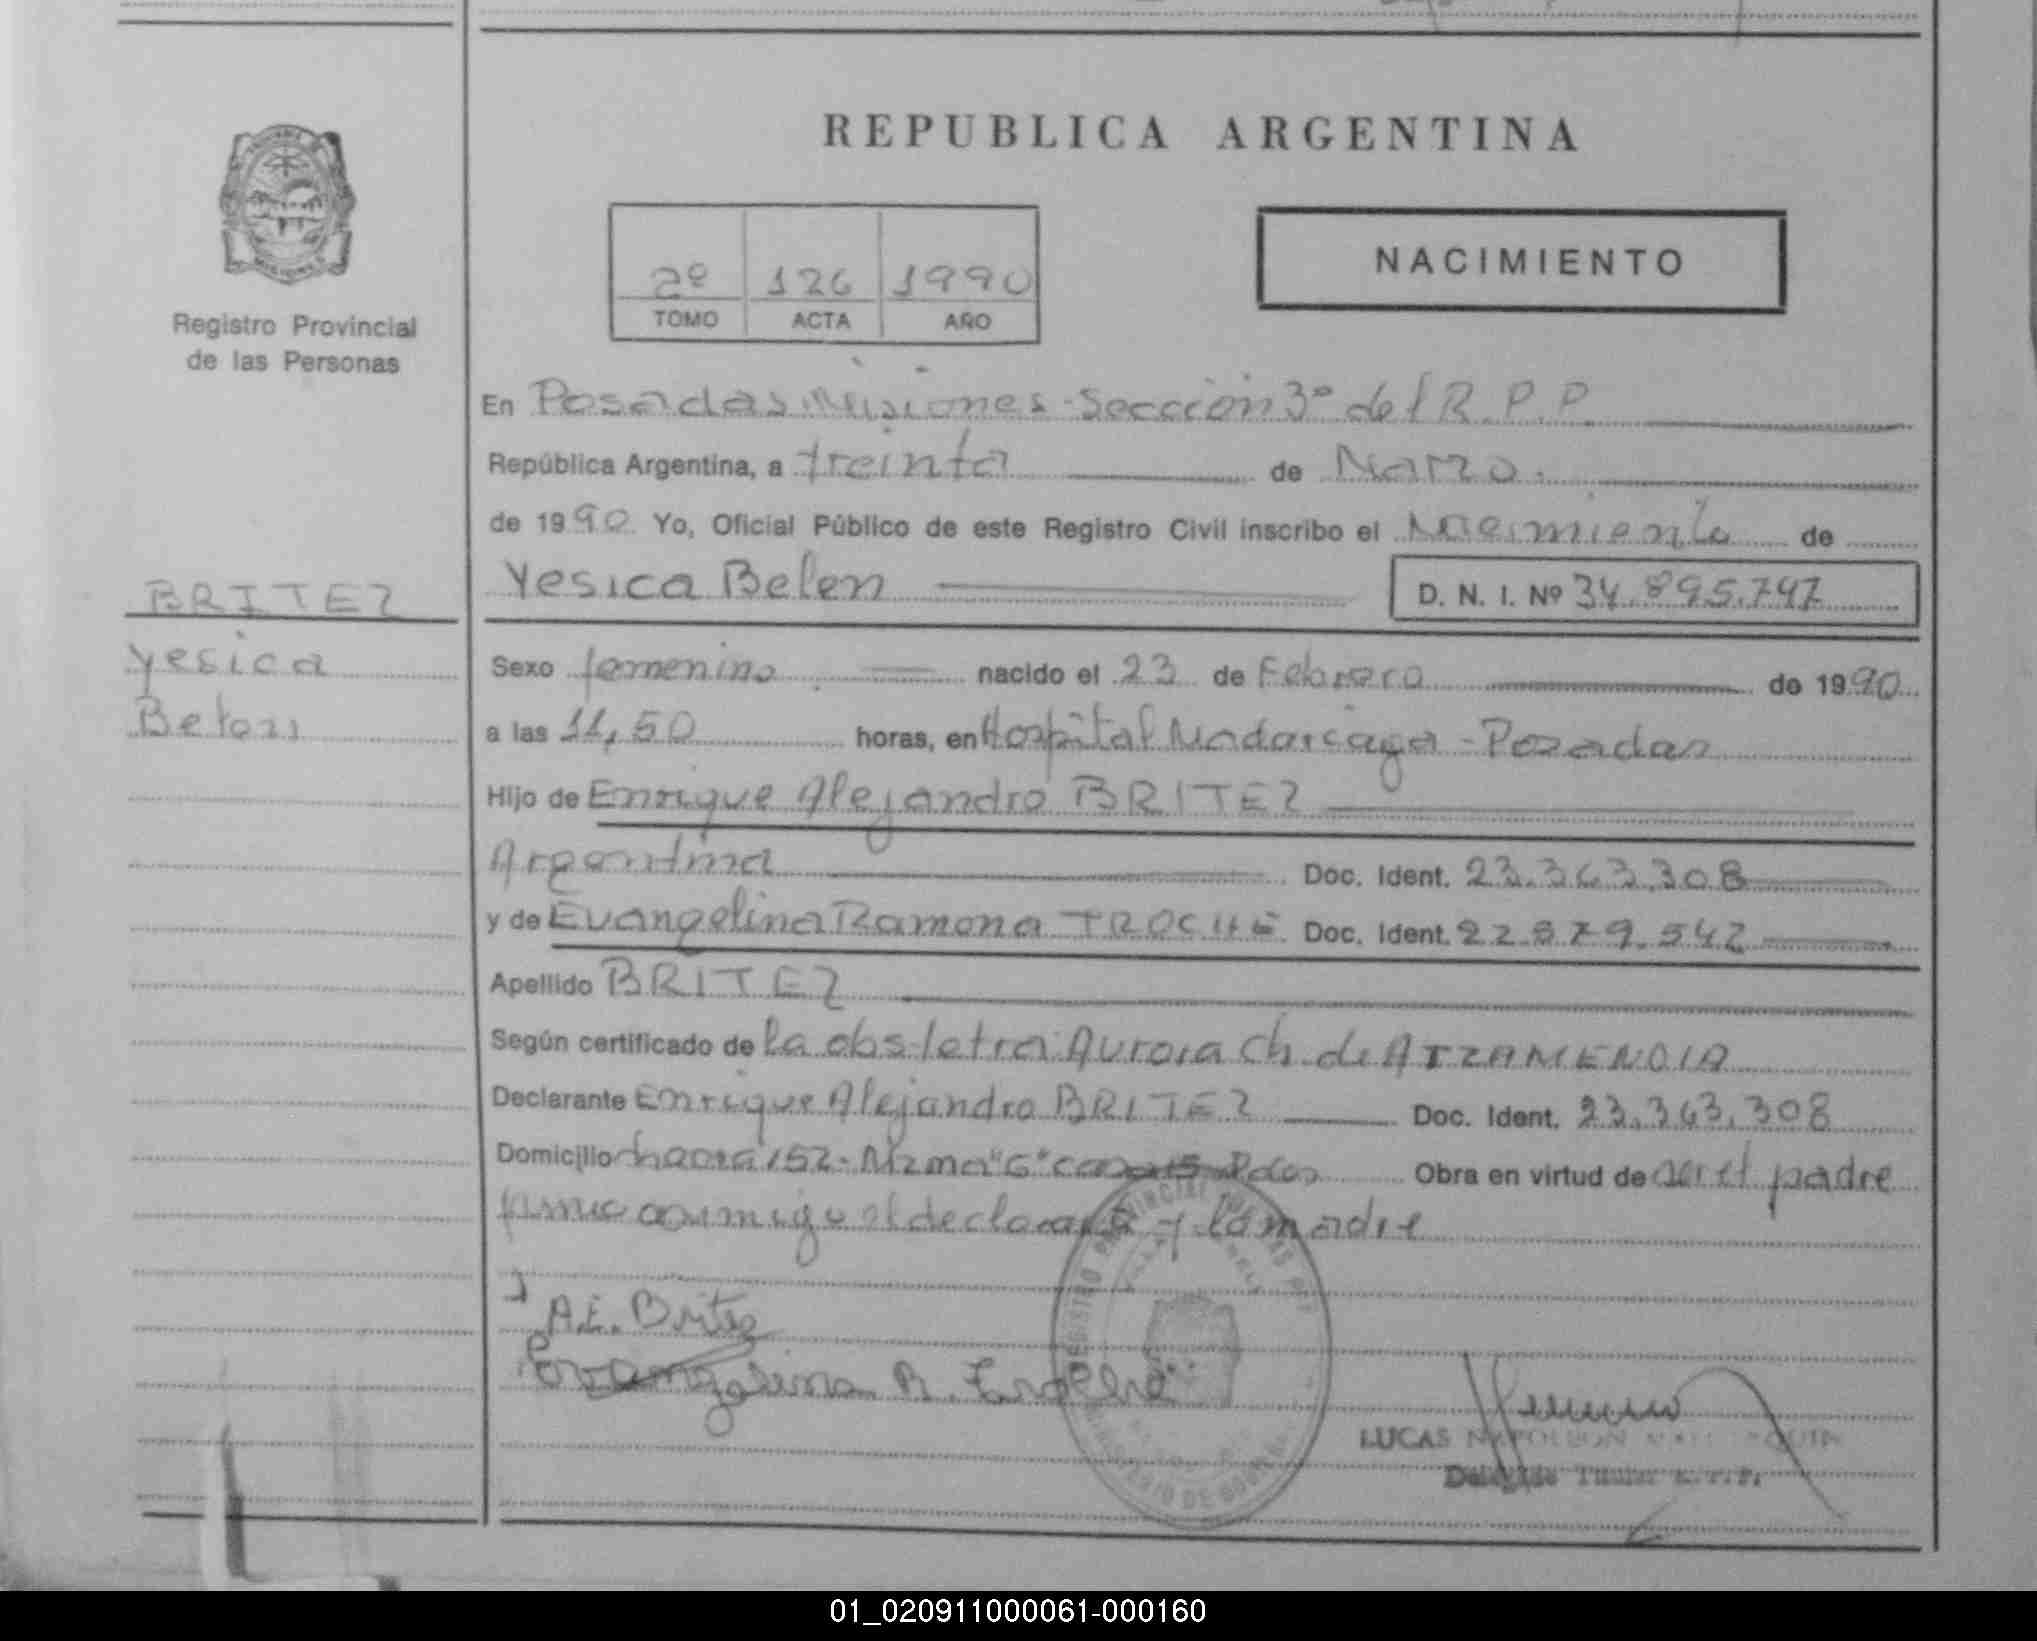 REPUBLICA ARGENTINA
NACIMIENTO
2º 126 1990
TOMO ACTA AÑO
Registro Provincial
de las Personas
En Posadas Misiones - Sección 3º del R.P.P.
República Argentina, a treinta de Marzo.
de 1990. Yo, Oficial Público de este Registro Civil inscribo el Nacimiento de
Yesica Belen D. N. I. Nº 34.895.747
BRITEZ
Yesica
Belen
Sexo femenino nacido el 23 de Febrero de 1990
a las 11,50 horas, en Hospital Madariaga - Posadas
Hijo de Enrique Alejandro BRITEZ
Argentina Doc. Ident. 23.363.308
y de Evangelina Ramona TROCHE Doc. Ident. 22.879.542
Apellido BRITEZ
Según certificado de la obstetra Aurora Ch. de ATZAMENDIA
Declarante Enrique Alejandro BRITEZ Doc. Ident. 23.363.308
Domicilio chacra 152 - Mzna "G" casa 15 Pdas Obra en virtud de ser el padre
firma conmigo el declarante y la madre
A.E. Britez
Evangelina R.
LUCAS NAPOLEON
Delegado Titular R.P.P.
REGISTRO PROVINCIAL DE LAS PER
MINISTERIO DE GOBIERNO
01_020911000061-000160